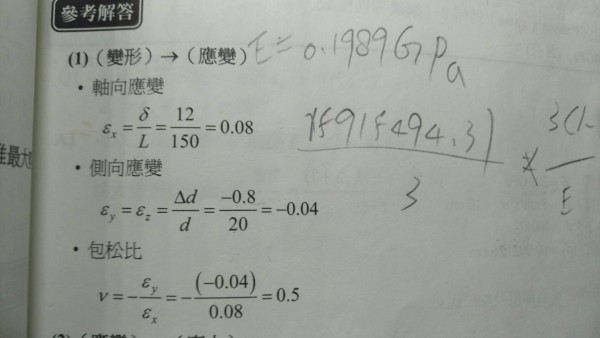 參考解答
(1)（變形）→（應變）
E≒0.1989GPa
・軸向應變
εx = δ/L = 12/150 = 0.08
15915494.3/3 × 3(1-/E
・側向應變
εy = εz = Δd/d = -0.8/20 = -0.04
・包松比
ν = -εy/εx = -(-0.04)/0.08 = 0.5